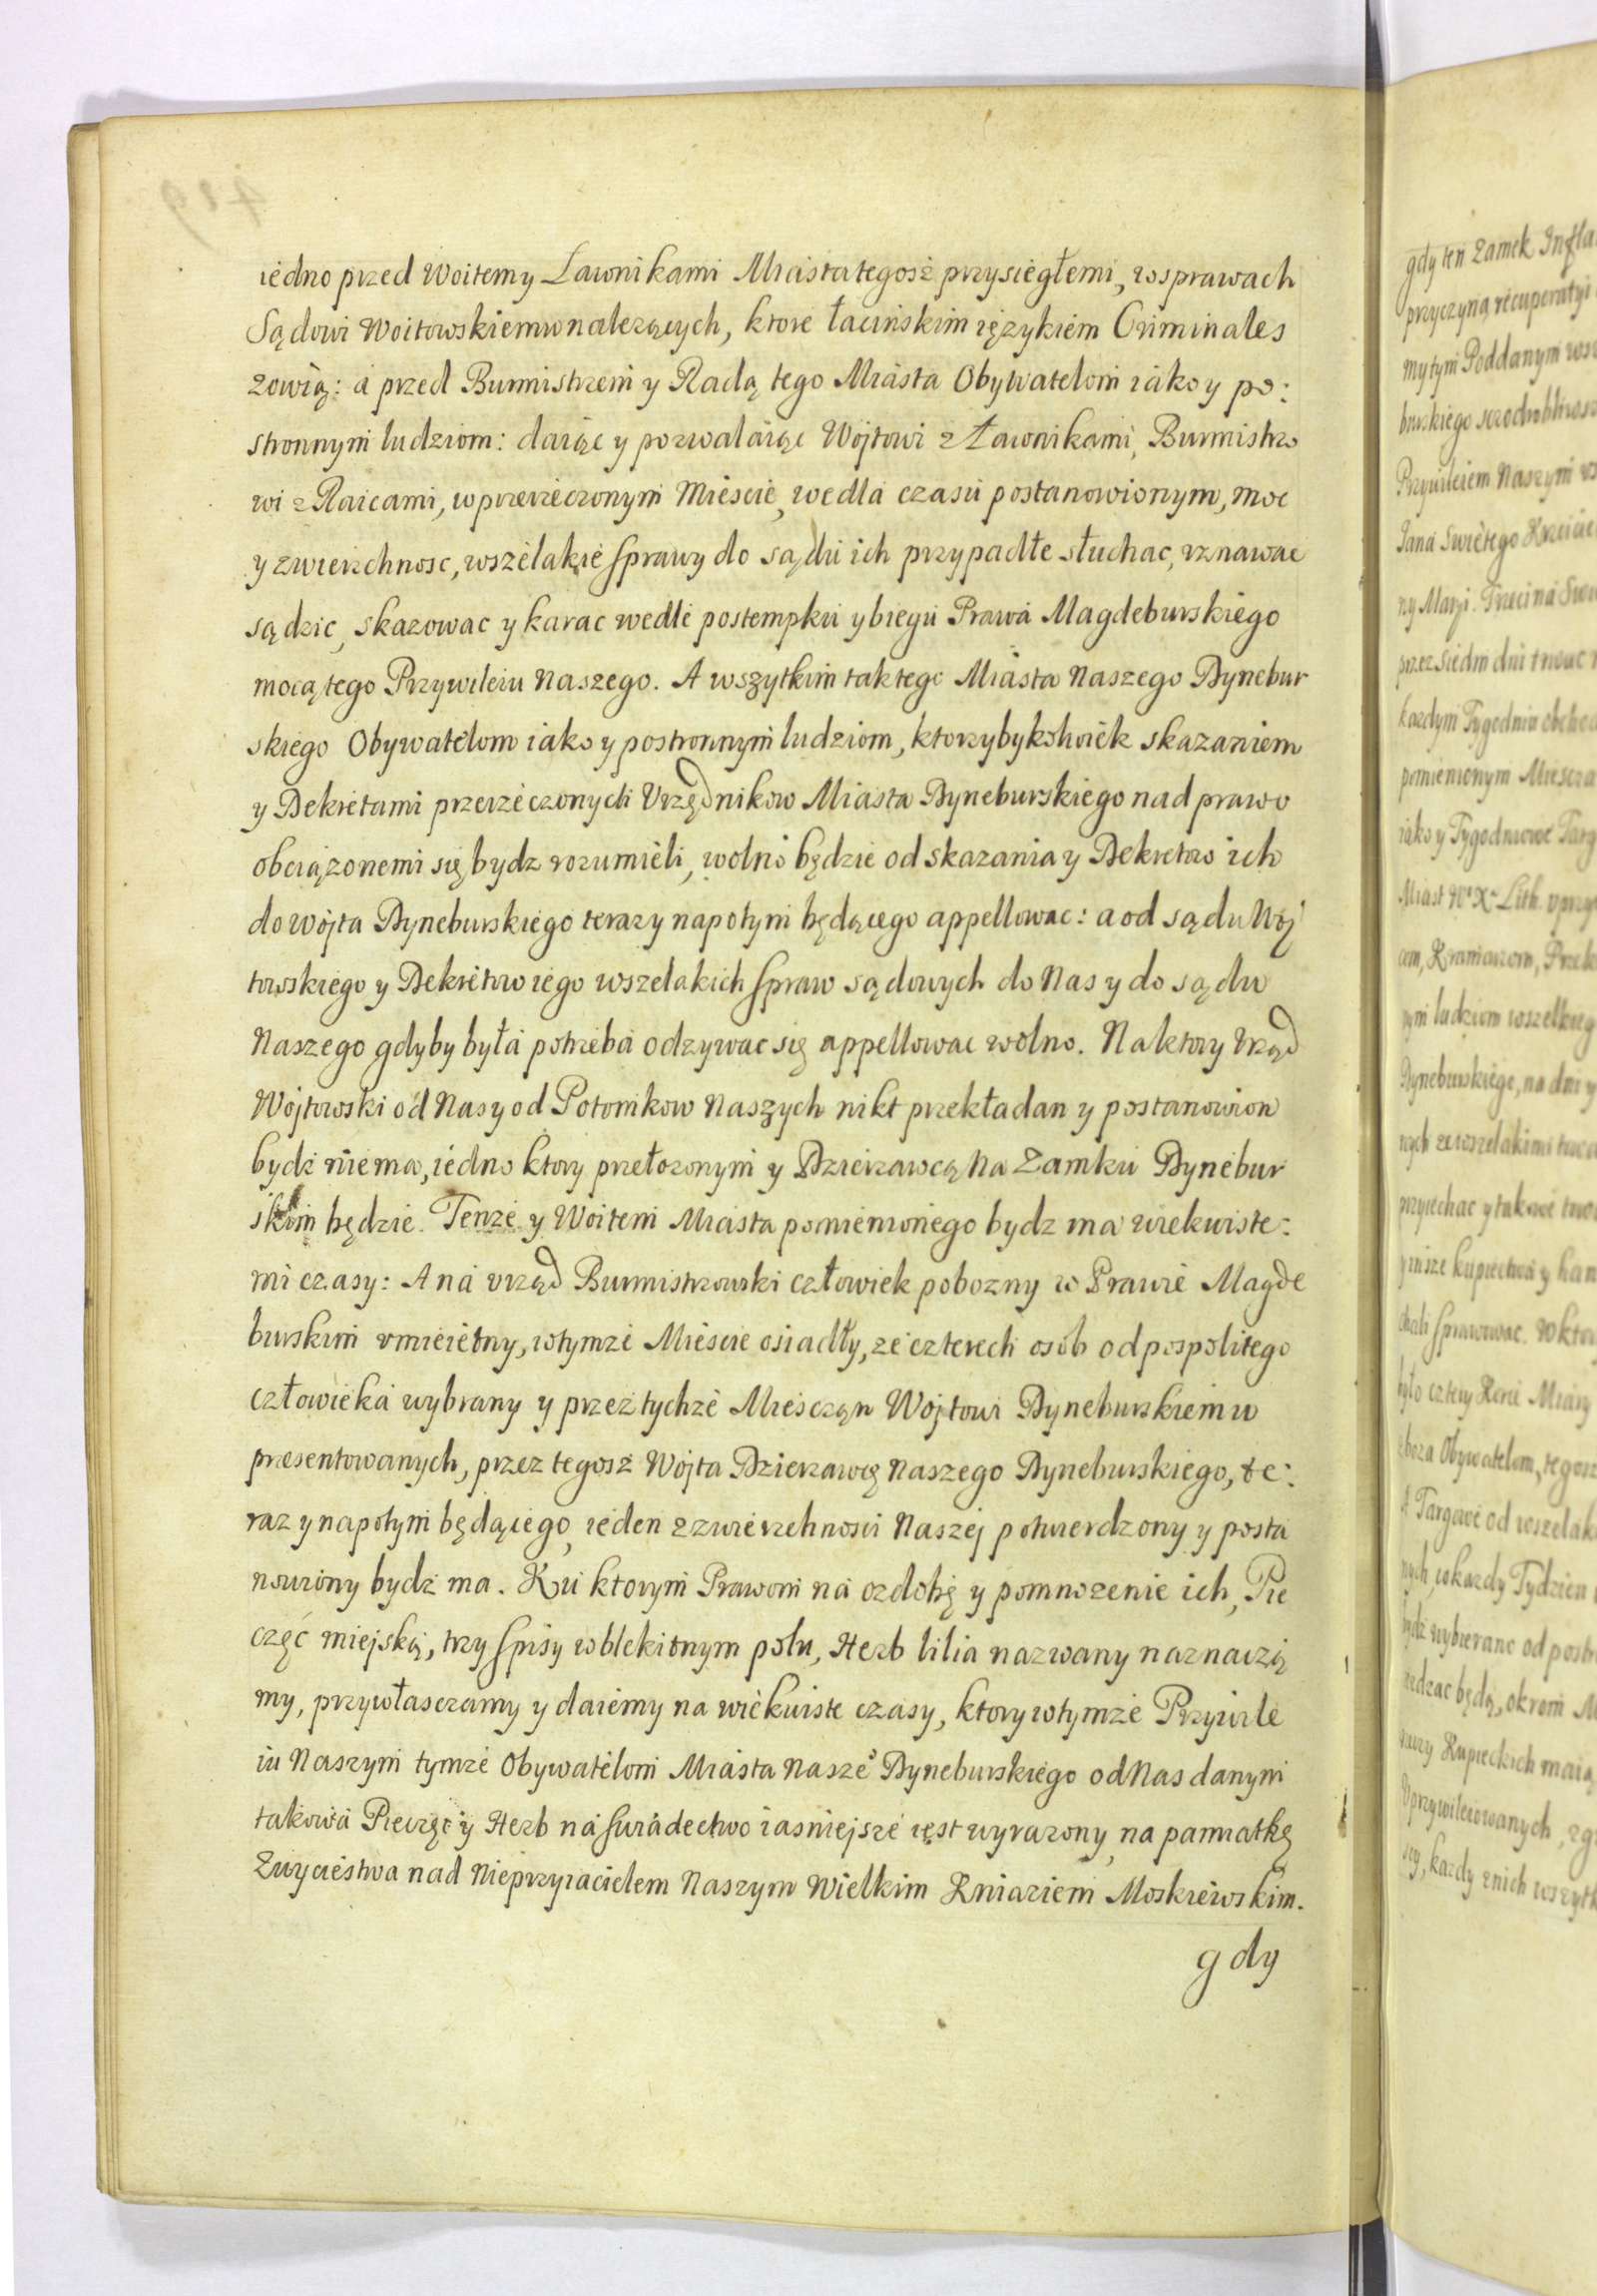 iedno przed Woitem y Ławnikami Miasta tegosz przysięgłemi, w sprawach
Sądowi Woitowskiemu nalezących, ktore łacińskim ięzykiem Criminales
zowią: a przed Burmistrzem y Radą tego Miasta Obywatelom iako y po:
stronnym ludziom: daiąc y pozwalaiąc Wójtowi z Ławnikami, Burmistrzo
wi z Raicami, w przerzeczonym Miescie, wedla czasu postanowionym, moc
y zwierzchnosc, wszelakie sprawy do sądu ich przypadłe słuchac, vznawac
sądzic, skazowac y karac wedle postempku y biegu Prawa Magdeburskiego
mocą tego Przywileiu Naszego. A wszytkim tak tego Miasta Naszego Dynebur
skiego Obywatelom iako y postronnym ludziom, ktorzybykolwiek skazaniem
y Dekretami przerzeczonych Vrzędnikow Miasta Dyneburskiego nad prawo
obciązonemi się bydz rozumieli, wolno będzie od skazania y Dekretow ich
do wójta Dyneburskiego teraz y napotym będącego appellowac: a od sądu Wój
towskiego y Dekretow iego wszelakich spraw sądowych do Nas y do sądu
Naszego gdyby była potrzeba odzywac się appellowac wolno. Na ktory Vrząd
Wojtowski od Nas y od Potomkow Naszych nikt przekładan y postanowion
bydz niema, iedno ktory przełozonym y Dzierzawcą Na Zamku Dynebur
skim będzie. Tenze y Woitem Miasta pomienionego bydz ma wiekuiste:
mi czasy: A na vrząd Burmistrzowski człowiek pobozny w Prawie Magde
burskim vmieiętny, w tymze Miescie osiadły, ze czterech osób od pospolitego
człowieka wybrany y przez tychze Miesczan Wójtowi Dyneburskiemu
presentowanych, przez tegosz Wójta Dzierzawcę Naszego Dyneburskiego, te:
raz y napotym będącego, ieden z zwierzchnosci Naszej potwierdzony y posta
nowiony bydz ma. Ku ktorym Prawom na ozdobę y pomnozenie ich, Pie
częć miejską, trzy spisy w blekitnym polu, Herb lilia nazwany naznaczą
my, przywłasczamy y daiemy na wiekuiste czasy, ktory w tymze Przywile
iu Naszym tymze Obywatelom Miasta Nasze° Dyneburskiego od Nas danym
takowa Pieczęc y Herb na swiadectwo iasniejsze iest wyrazony, na pamiatkę
Zwycięstwa nad Nieprzyiacielem Naszym Wielkim Kniaziem Moskiewskim.
gdy
gdy ten Zamek Infla
przyczyną recuperatyi
my tym Poddanym
burskiego
Przywileiem Naszym
Jana Swiętego
ny Maryi. Trzeci na
przez siedm dni trwac
kazdym Tygodniu
pomienionym Miescza
iako y Tygodniowe Targ
Miast W° X° Lith.
com, Kramarzom, Przek
nym ludziom wszelkieg
Dyneburskiego, na dni y
nych ze wszelakimi
przyiechac y takowe
y insze kupiectwa y han
chcieli sprawowac. W ktor
było cztery
zboza Obywatelom, tegosz
A Targowe od wszelak
nych, w kazdy Tydzien
bydz wybierano od postr
ezdzac będą, okrom M
Kupieckich maią
Vprzywileiowanych, zg
się, kazdy z nich wszytk